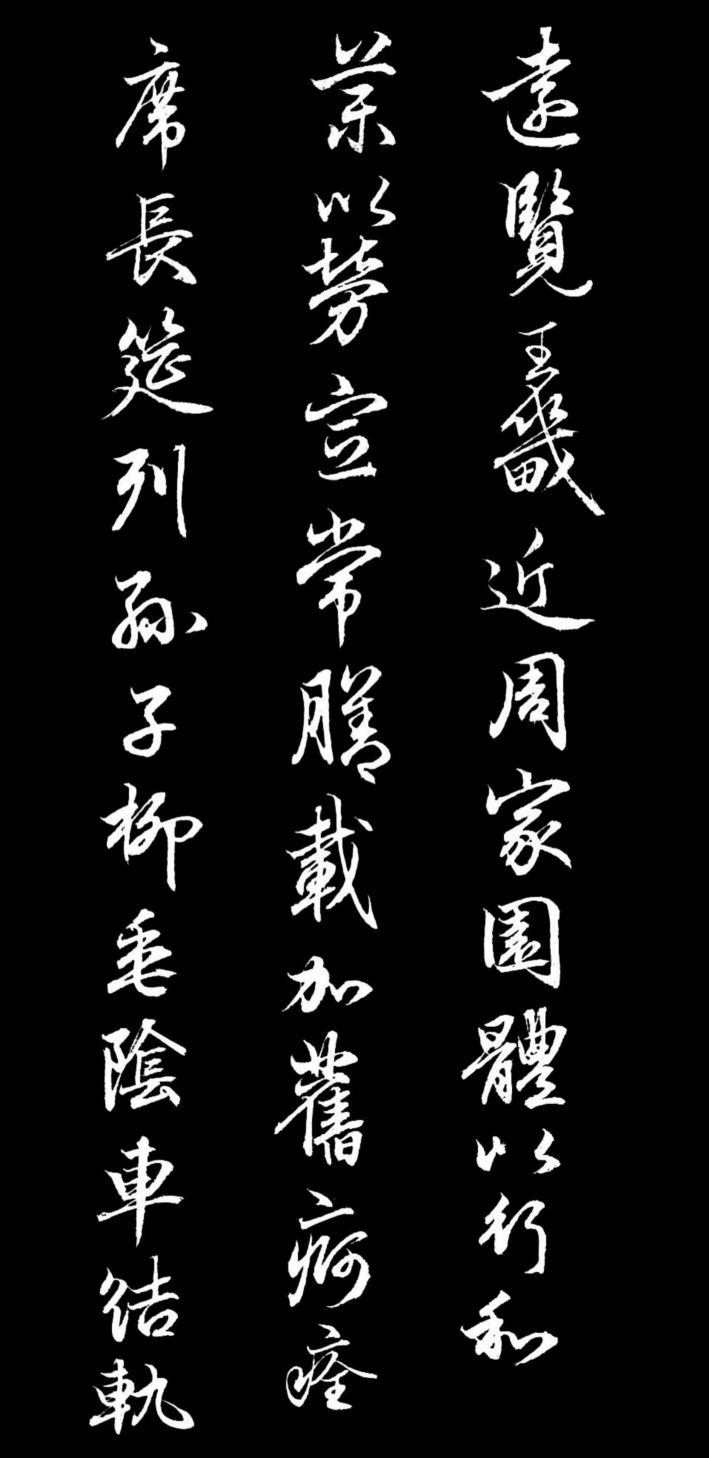 遠覽王畿近周家園體以行和
藥以勞宣常膳載加舊痾有痊
席長筵列孫子柳垂陰車結軌